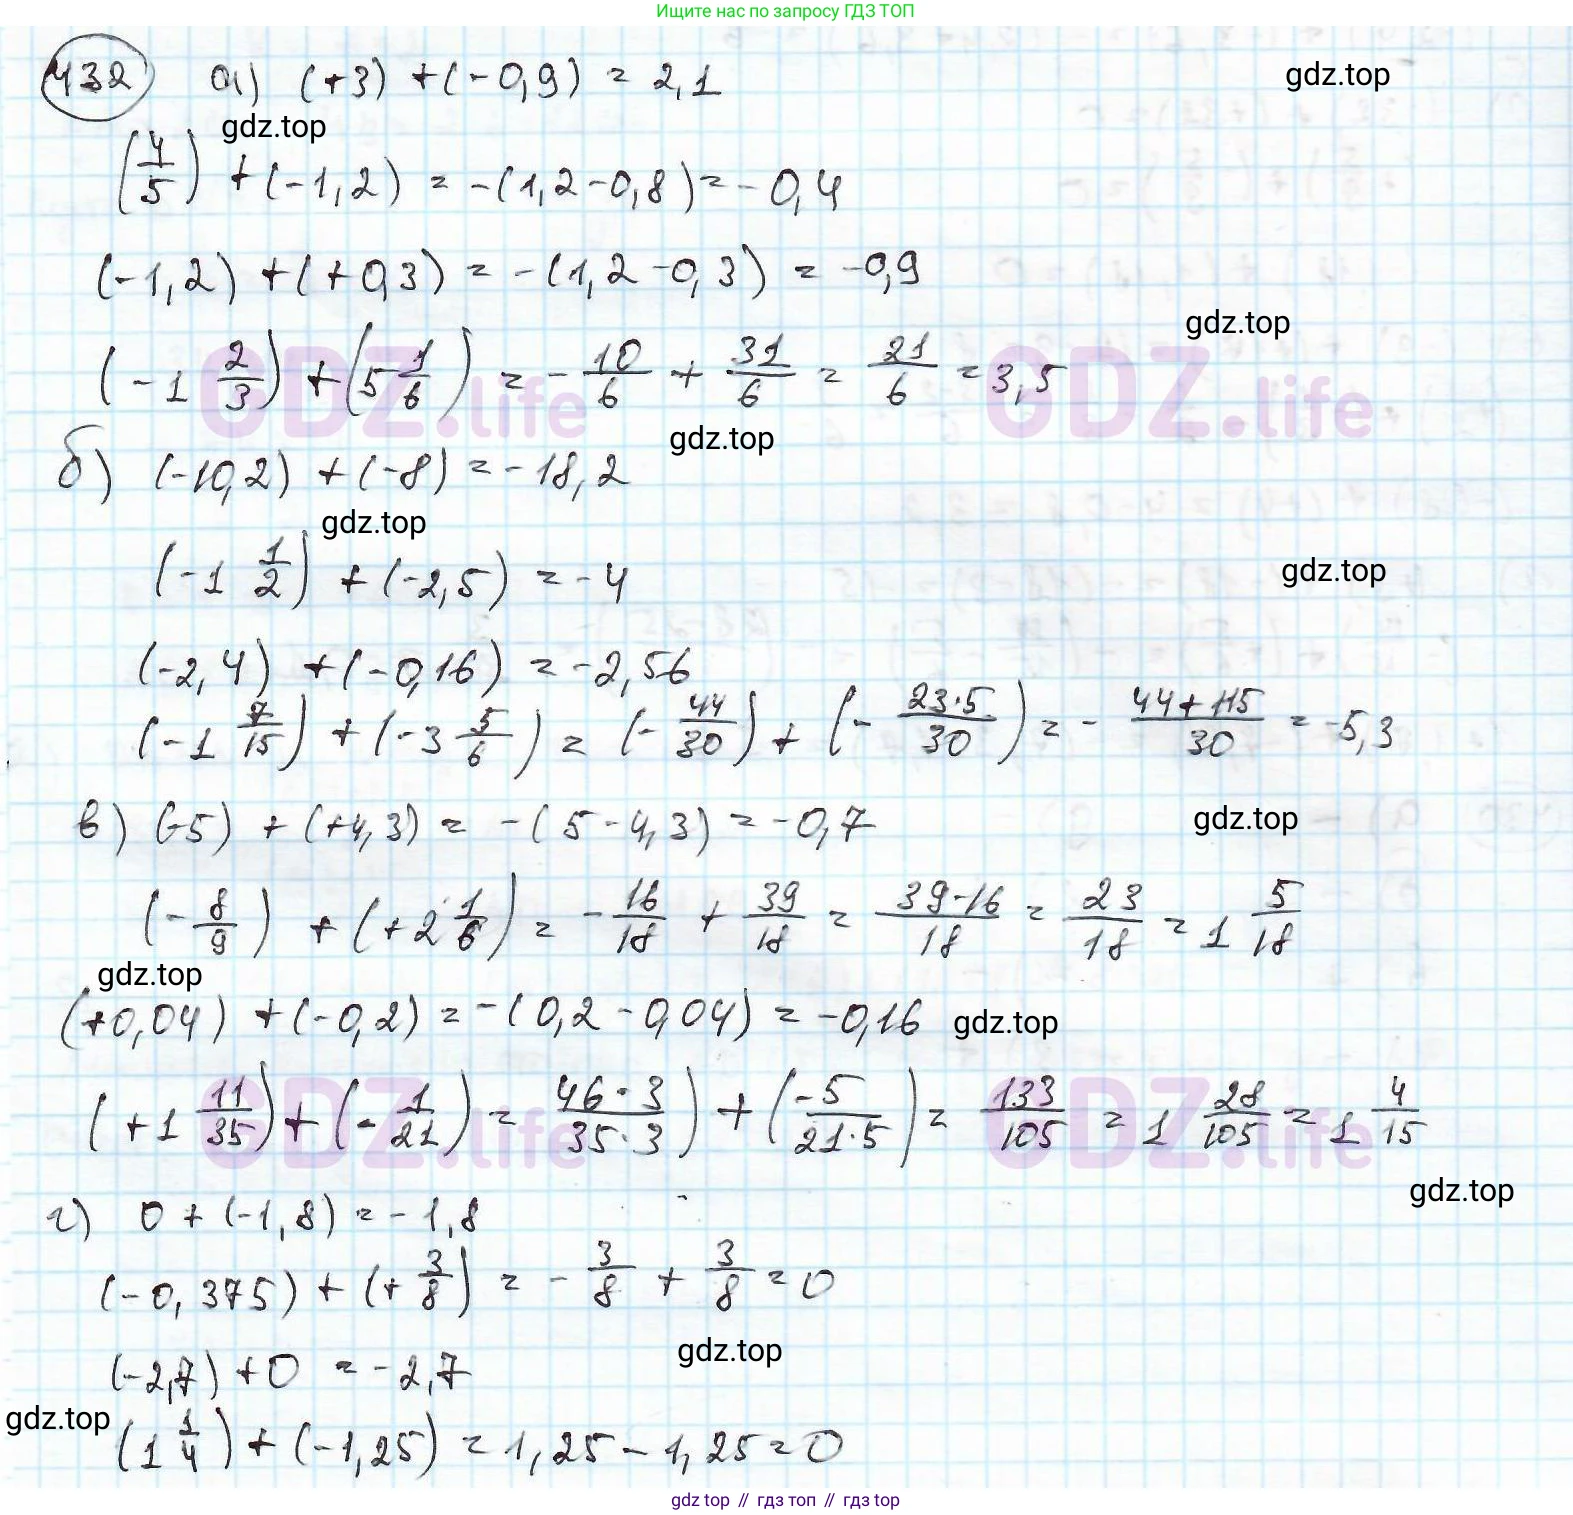 Ищите нас по запросу ГДЗ ТОП
432 а) (+3) + (-0,9) = 2,1
gdz.top
gdz.top
(4/5) + (-1,2) = -(1,2-0,8) = -0,4
(-1,2) + (+0,3) = -(1,2-0,3) = -0,9
gdz.top
(-1 2/3) + (5 1/6) = -10/6 + 31/6 = 21/6 = 3,5
GDZ.life GDZ.life
gdz.top
б) (-10,2) + (-8) = -18,2
gdz.top
(-1 1/2) + (-2,5) = -4
gdz.top
(-2,4) + (-0,16) = -2,56
(-1 7/15) + (-3 5/6) = (-44/30) + (-23·5/30) = -44+115/30 = -5,3
в) (-5) + (+4,3) = -(5-4,3) = -0,7
gdz.top
(-8/9) + (+2 1/6) = -16/18 + 39/18 = 39-16/18 = 23/18 = 1 5/18
gdz.top
(+0,04) + (-0,2) = -(0,2-0,04) = -0,16
gdz.top
(+1 11/35) + (-1/21) = 46·3/35·3) + (-5/21·5) = 133/105 = 1 28/105 = 1 4/15
GDZ.life GDZ.life
gdz.top
г) 0 + (-1,8) = -1,8
(-0,375) + (+3/8) = -3/8 + 3/8 = 0
gdz.top
(-2,7) + 0 = -2,7
gdz.top
(1 1/4) + (-1,25) = 1,25-1,25=0
gdz top // гдз топ // гдз top